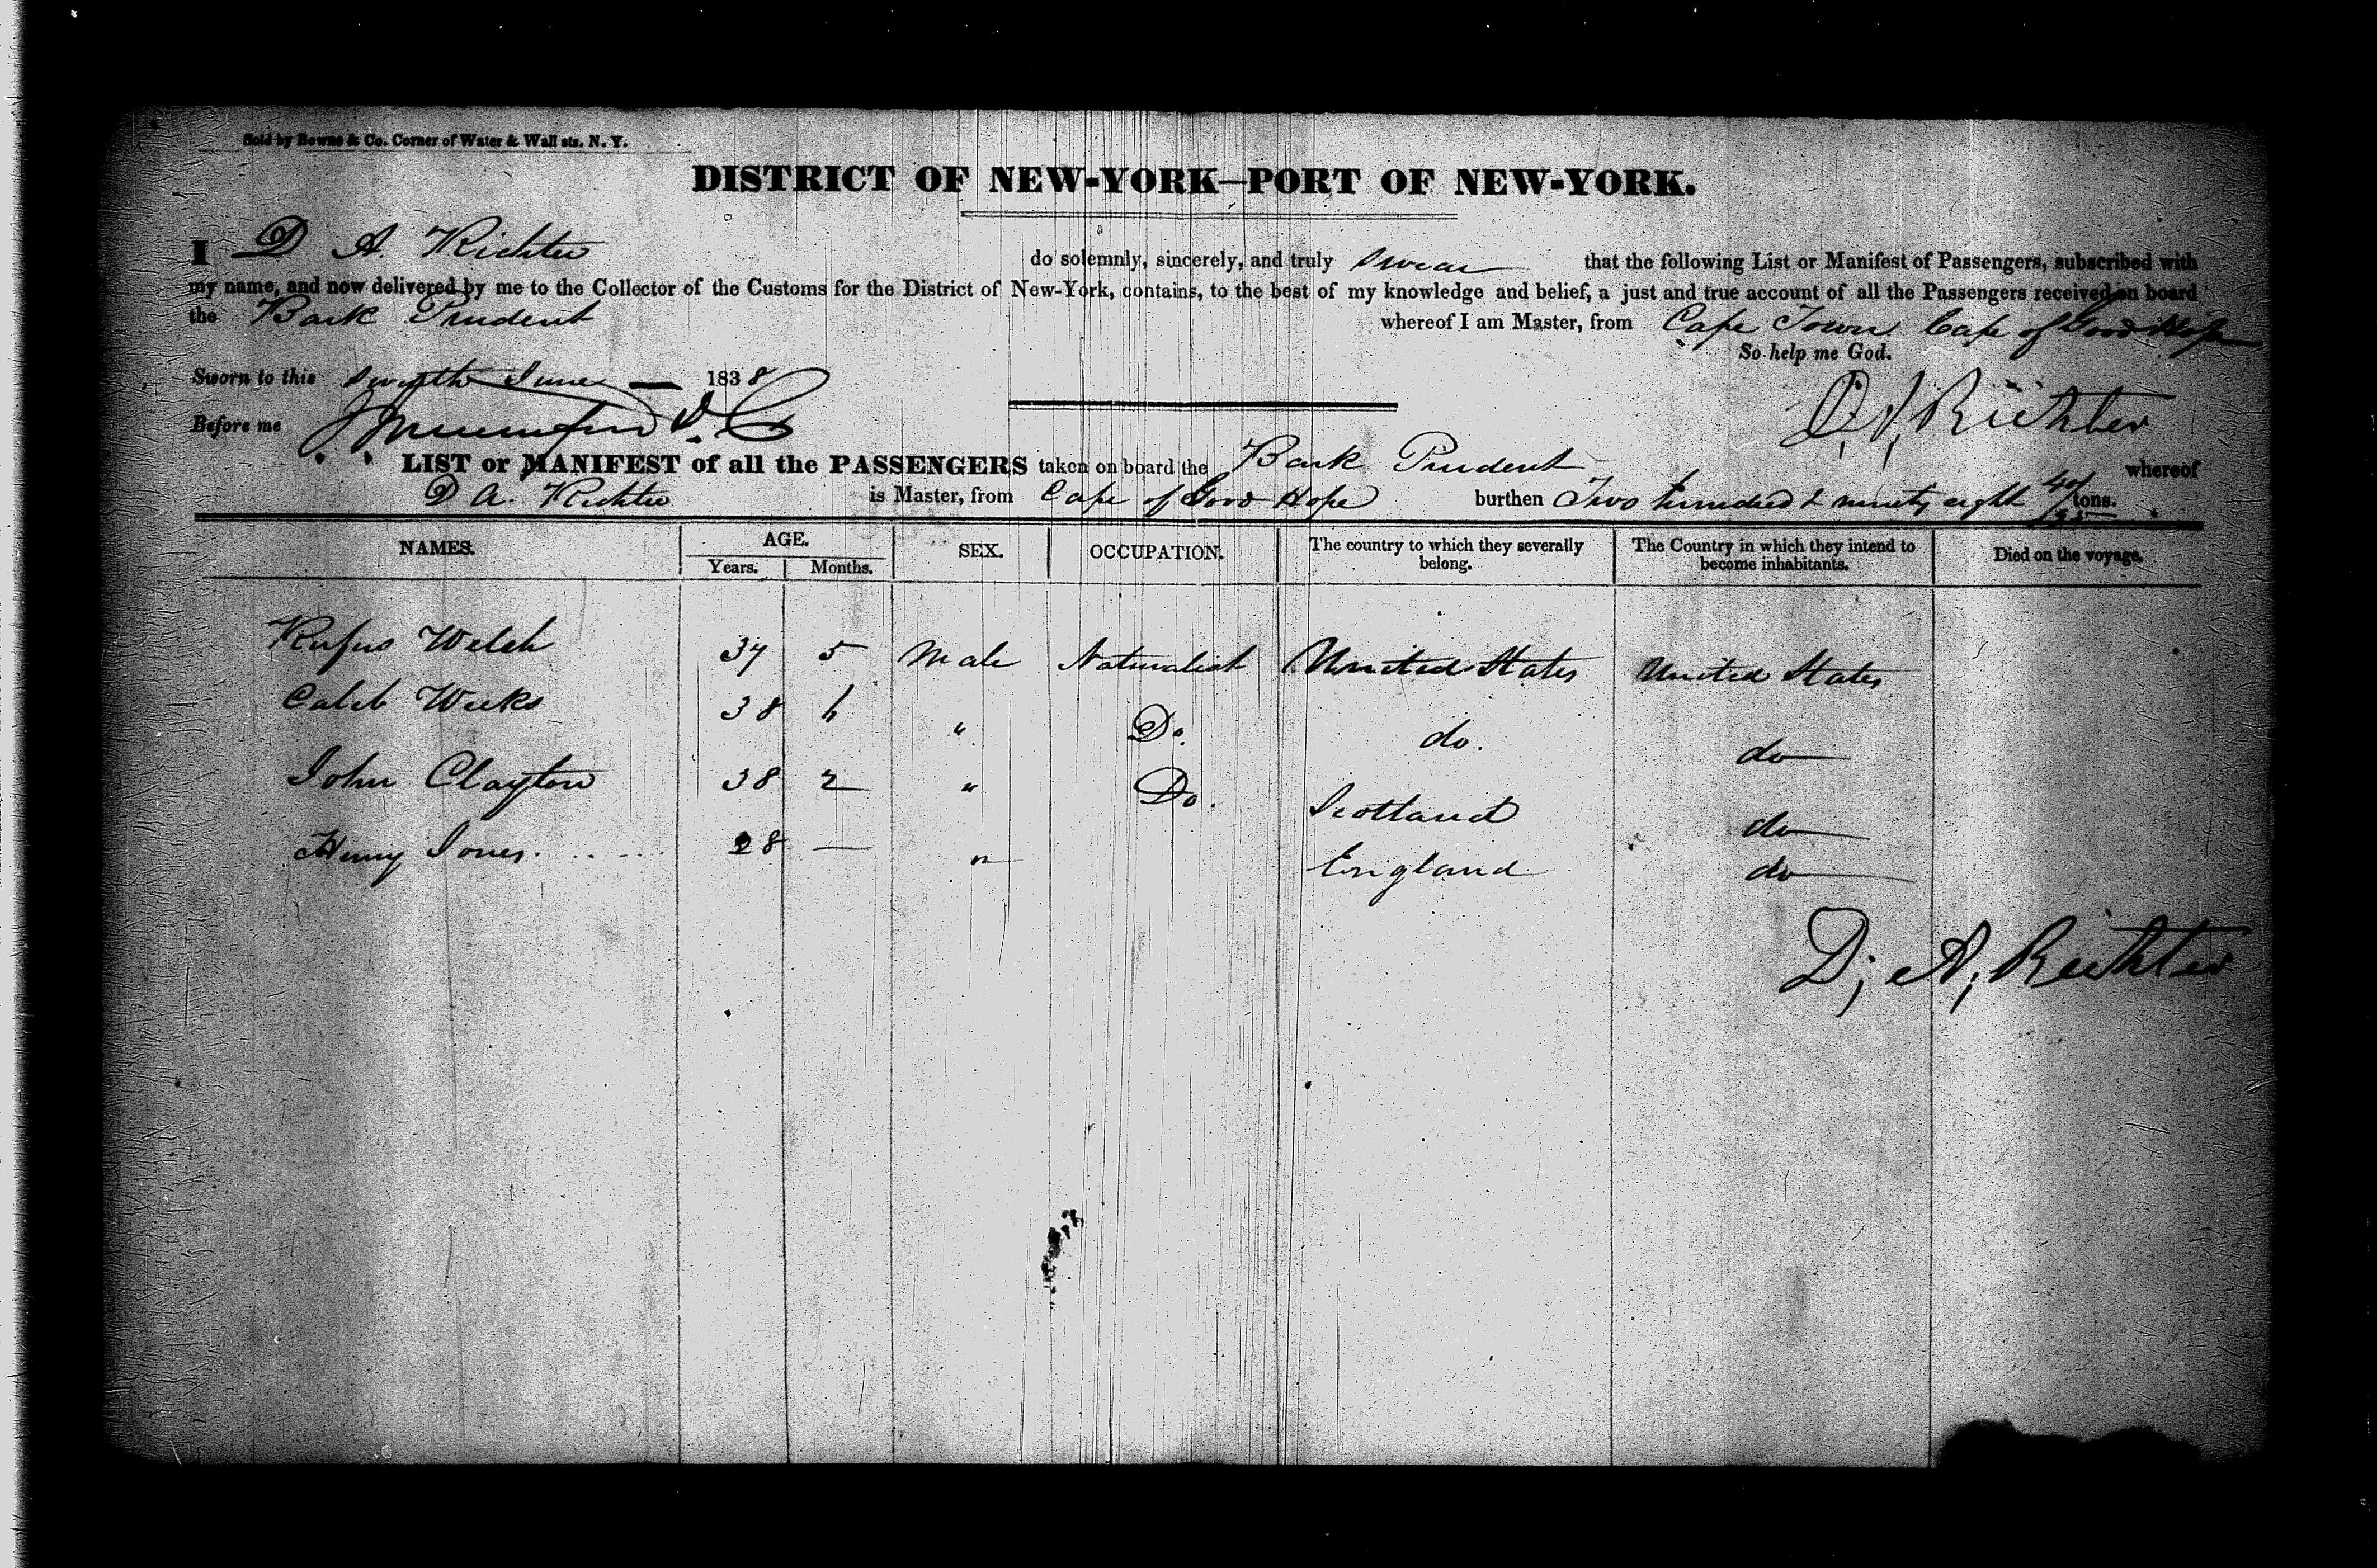 Sold by Bowne & Co. Corner of Water & Wall sts. N. Y.
DISTRICT OF NEW-YORK—PORT OF NEW-YORK.
I D A. Richter do solemnly, sincerely, and truly swear that the following List or Manifest of Passengers, subscribed with
my name, and now delivered by me to the Collector of the Customs for the District of New-York, contains, to the best of my knowledge and belief, a just and true account of all the Passengers received on board
the Bark Prudent whereof I am Master, from Cape Town Cape of Good Hope
So help me God.
Sworn to this June — 1838
D. A. Richter
Before me
LIST or MANIFEST of all the PASSENGERS taken on board the Bark Prudent whereof
D A. Richter is Master, from Cape of Good Hope burthen Two hundred & ninety eight 40/95 tons.
NAMES. AGE. SEX. OCCUPATION. The country to which they severally belong. The Country in which they intend to become inhabitants. Died on the voyage.
Years. Months.
Rufus Welch 37 5 Male Naturalist United States United States
Caleb Weeks 38 6 " Do. do. do
John Clayton 38 2 " Do. Scotland do
Henry Jones 28 — " England do
D, A, Richter